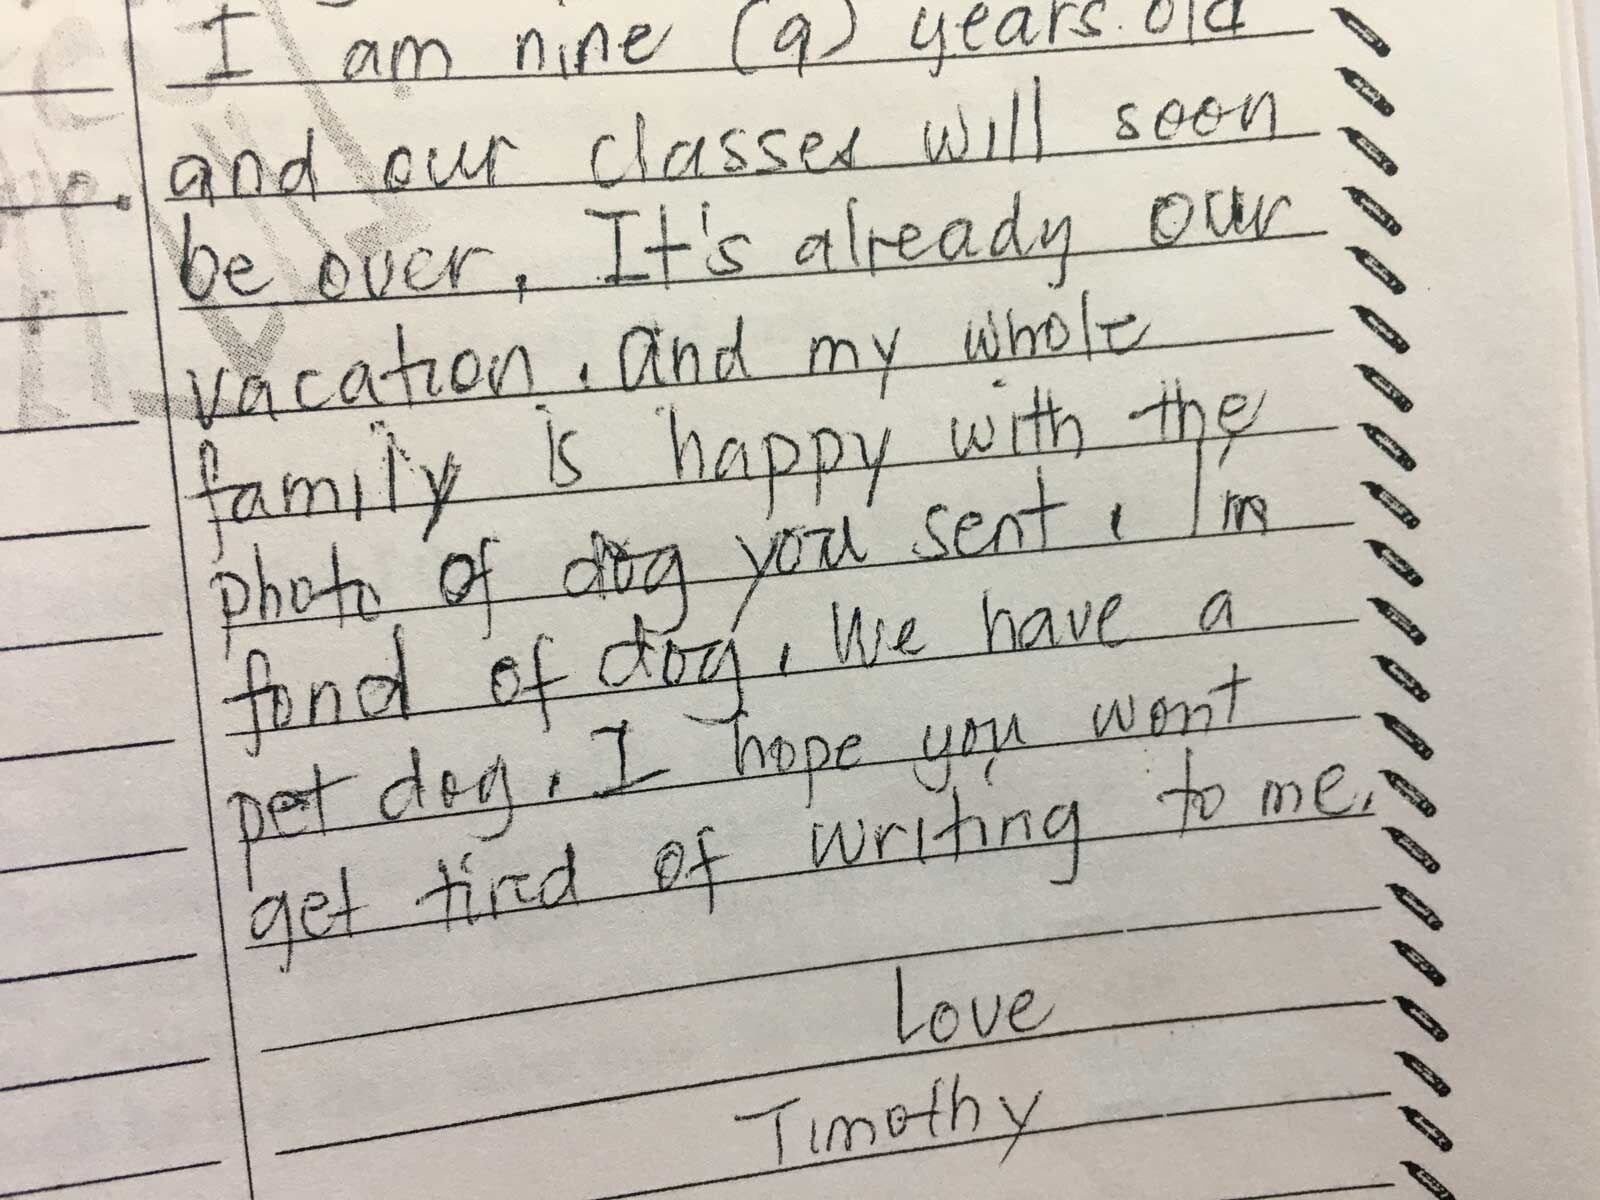 I am nine (9) years old
and our classes will soon
be over. It's already our
vacation. And my whole
family is happy with the
photo of dog you sent. I'm
fond of dog. We have a
pet dog. I hope you wont
get tired of writing to me.
Love
Timothy